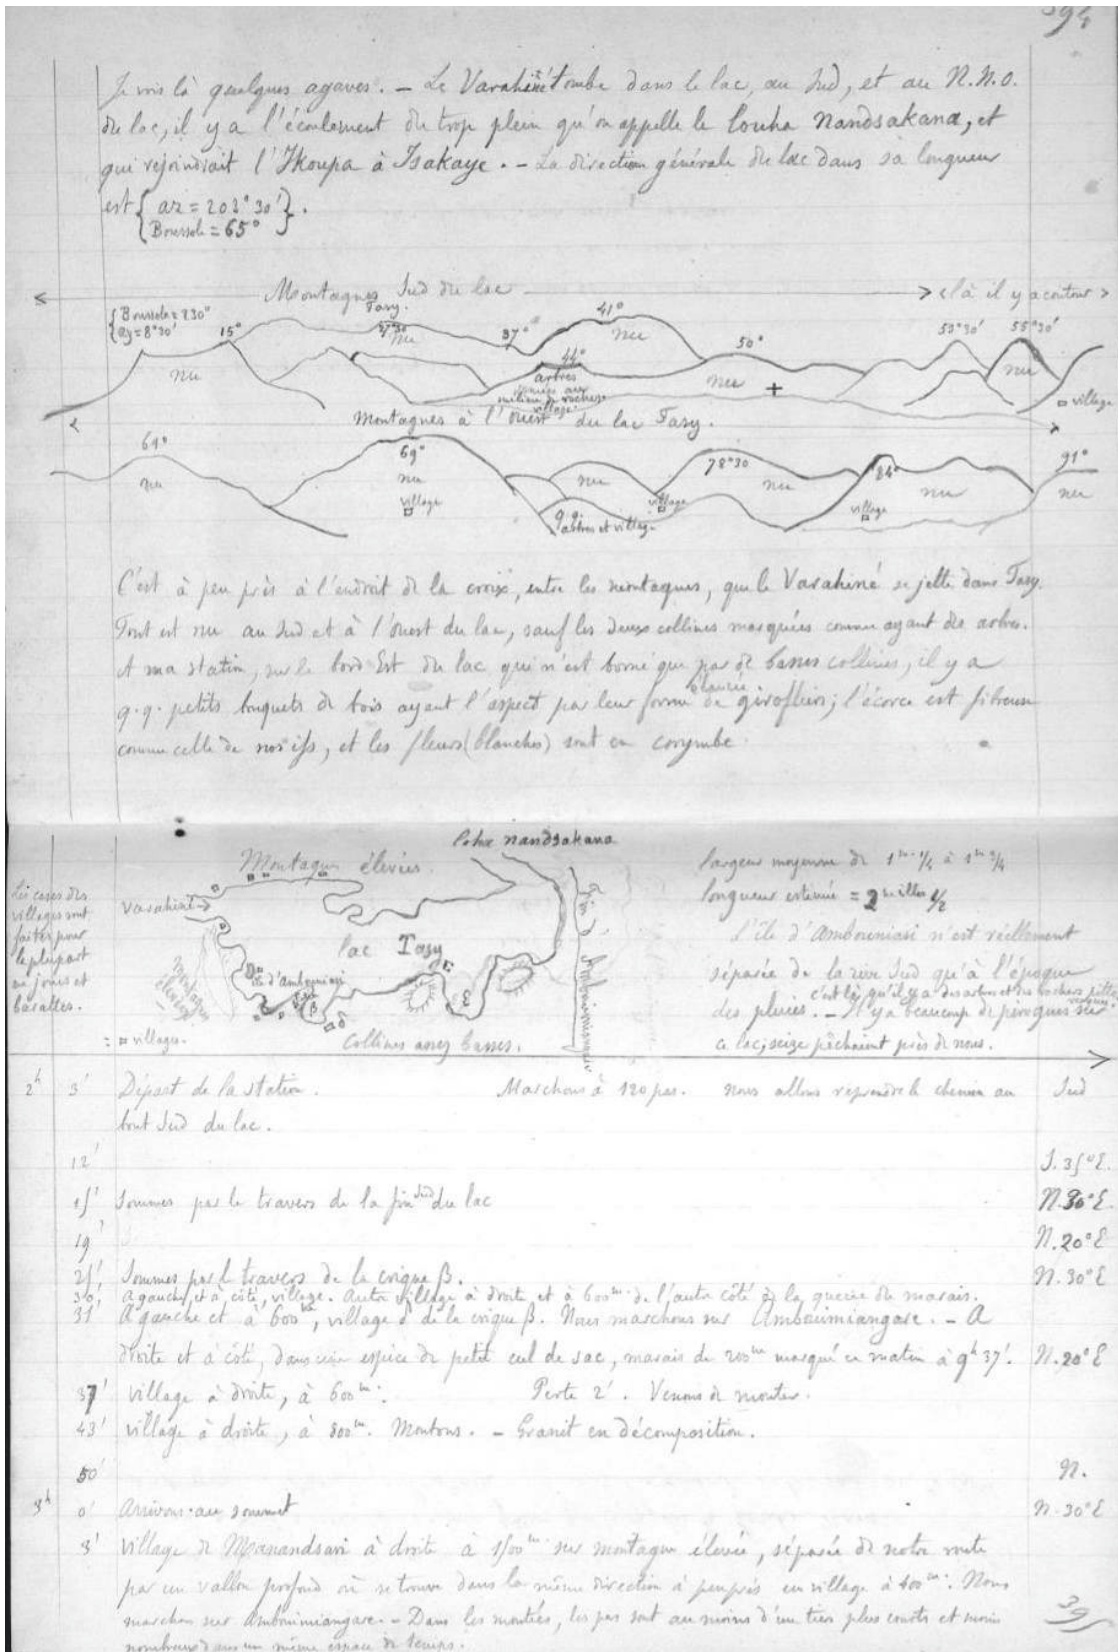 394
Je vois là quelques agaves. — Le Varahiné tombe dans le lac, au Sud, et au N.N.O.
du lac, il y a l'écoulement du trop plein qu'on appelle le Louha Nandsakana, et
qui rejoindrait l'Ikoupa à Tsakaye. — La direction générale du lac dans sa longueur
est { az = 203° 30' } .
Boussole = 65°
Montagnes Sud du lac
là il y a contour
Boussole = 230°
az = 8° 30'
15°
Tasy.
27° 30
37°
41°
44°
50°
53° 30'
55° 30'
nu
nu
nu
nu
nu
arbres
milieu de roches
village
village
Montagnes à l'ouest du lac Tasy.
61°
69°
78° 30
84°
91°
nu
nu
nu
nu
nu
nu
village
village
village
q.q. arbres et village
C'est à peu près à l'endroit de la croix, entre les montagnes, que le Varahiné se jette dans Tasy.
Tout est nu au Sud et à l'ouest du lac, sauf les deux collines marquées comme ayant des arbres.
A ma station, sur le bord Est du lac qui n'est borné que par de basses collines, il y a
q.q. petits bouquets de bois ayant l'aspect par leur forme élancée de girofliers; l'écorce est fibreuse
comme celle de nos ifs, et les fleurs (blanches) sont en corymbe.
Louha nandsakana
Montagnes élevées
Varahiné
lac Tasy
île d'Ambouniasi
Montagnes élevées
β
δ
ε
Collines assez basses.
= villages.
Les cases des
villages sont
faites pour
la plupart
en joncs et
bararattes.
largeur moyenne de 1m. 1/4 à 1m 3/4
longueur estimée = 2 milles 1/2
l'île d'Ambouniasi n'est réellement
séparée de la rive Sud qu'à l'époque
c'est là qu'il y a des arbres et des rochers
des pluies. — Il y a beaucoup de pirogues sur
ce lac; seize pêchaient près de nous.
2h 3' Départ de la station. Marchons à 120 pas. Nous allons reprendre le chemin au Sud
bout Sud du lac.
12' S. 35° E.
15' Sommes par le travers de la fin Sud du lac N. 30° E.
19' N. 20° E
25' Sommes par le travers de la crique β. N. 30° E
30' A gauche et à côté, village. Autre village à droite et à 600m de l'autre côté de la queue du marais.
31' A gauche et à 600m, village δ de la crique β. Nous marchons sur Amboimiangare. — A
droite et à côté, dans une espèce de petit cul de sac, marais de 200m marqué ce matin à 9h 37'. N. 20° E
37' village à droite, à 600m. Perte 2'. Venons de monter.
43' village à droite, à 800m. Moutons. — Granit en décomposition.
50' N.
3h 0' Arrivons au sommet N. 30° E
3' village de Manandsari à droite à 1500m sur montagne élevée, séparée de notre route
par un vallon profond où se trouve dans la même direction à peu près un village à 400m. Nous
marchons sur Amboimiangare. — Dans les montées, les pas sont au moins d'un tiers plus courts et moins
nombreux dans un même espace de temps.
39